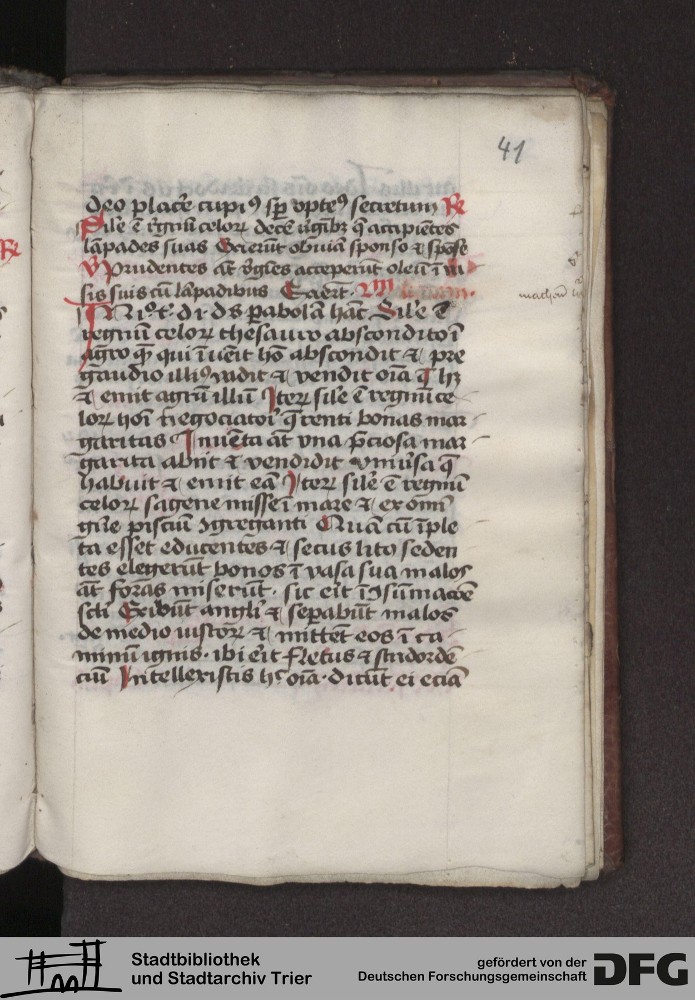 41
deo placē cupiꝰ sꝑ optēꝰ secretum ℟
Sile ē regnū celoꝝ decē v̄ginibꝫ q̄ accipiētes
lāpades suas Exierūt obuiā sponso ⁊ sponse
℣ Prudentes āt v̄gīes acceperūt oleū ī va
sis suis cū lāpadibus Exierūt. VIII
IN iꝉꝉo t̄. dī. dn̄s parabolam hāc Sile ē
regnū celoꝝ thesauro abscondito ī
agro quē qui īuēit hō abscondit ⁊ pre
gaudio illiꝰ vadit ⁊ vendit oīa q̄ hꝫ
⁊ emit agrū illū Iteꝝ sile ē regnū ce
loꝝ hoī negociatori q̄renti bonas mar
garitas Inuēta āt vna p̄ciosa mar
garita abiit ⁊ vendidit vniūsa q̄
habuit ⁊ emit eā Iteꝝ sile ē regnū
celoꝝ sagene misse ī mare ⁊ ex omī
gn̄e pisciū ꝯgreganti Quā cū īple
ta esset educentes ⁊ secus lito seden
tes elegerūt bonos ī vasa sua malos
āt foras miserūt. sic erit ī ꝯsūmacōe
scl̄i Exibūt angli ⁊ seꝑabūt malos
de medio iustoꝝ ⁊ mittēt eos ī ca
minū ignis. ibi erit fletus ⁊ stridor dē
ciū Intellexistis hͨ oīa. dicūt ei eciā
Stadtbibliothek
und Stadtarchiv Trier
gefördert von der
Deutschen Forschungsgemeinschaft
DFG